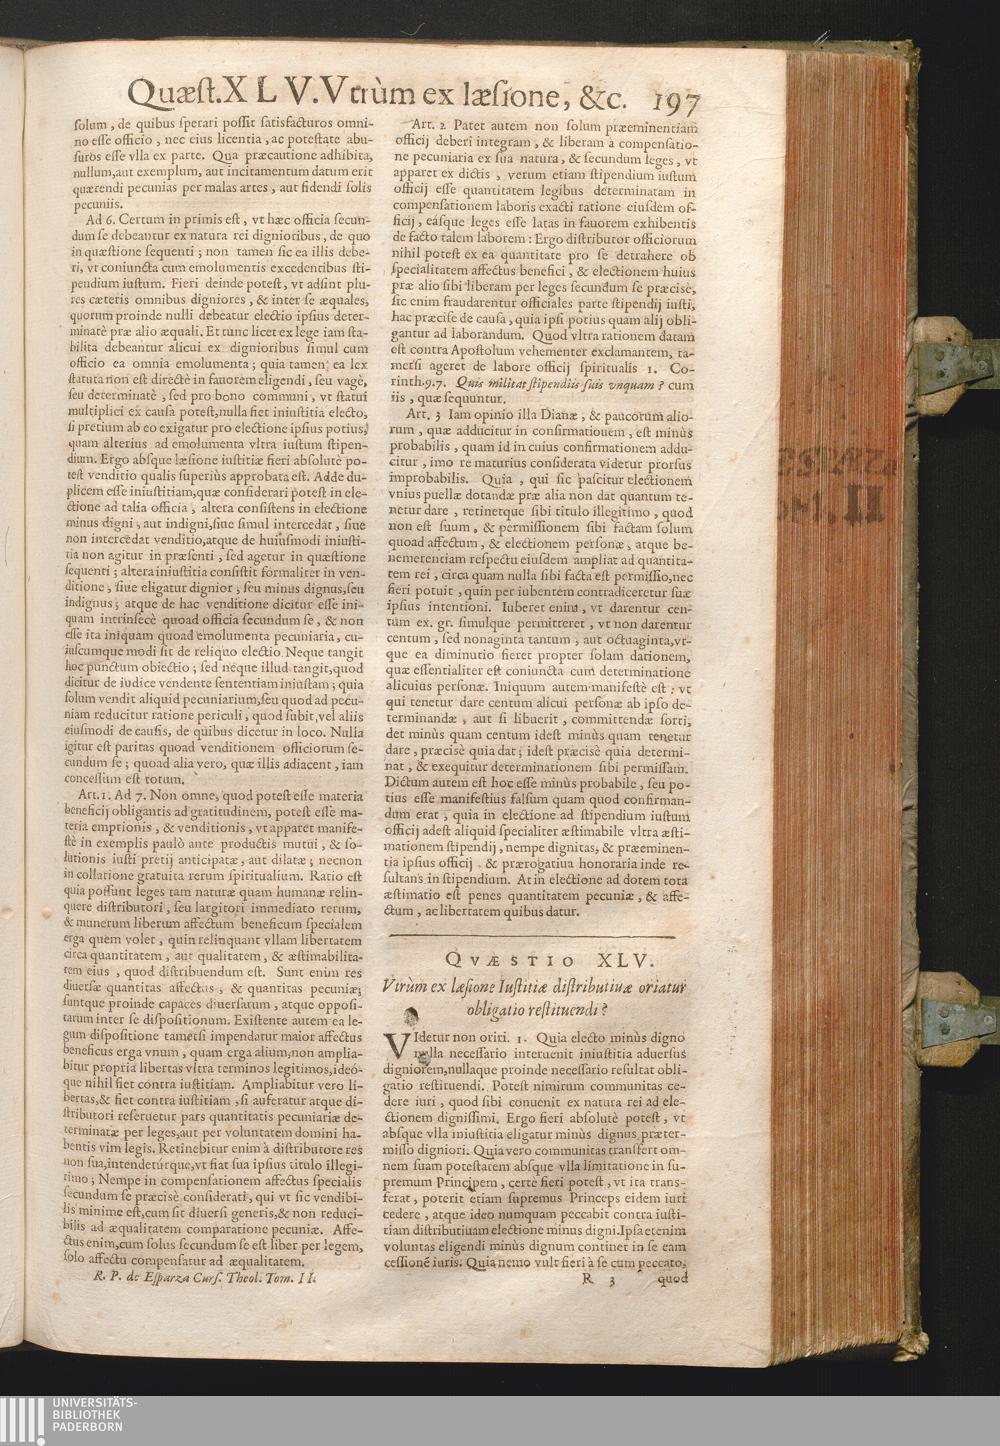 Quæst. XLV. Vtrùm ex læsione, &c. 197
solum, de quibus sperari possit satisfacturos omni-
no esse officio, nec eius licentia, ac potestate abu-
suros esse vlla ex parte. Qua præcautione adhibita,
nullum, aut exemplum, aut incitamentum datum erit
quærendi pecunias per malas artes, aut fidendi solis
pecuniis.
Ad 6. Certum in primis est, vt hæc officia secun-
dum se debeantur ex natura rei dignioribus, de quo
in quæstione sequenti; non tamen sic ea illis debe-
ri, vt coniuncta cum emolumentis excedentibus sti-
pendium iustum. Fieri deinde potest, vt adsint plu-
res cæteris omnibus digniores, & inter se æquales,
quorum proinde nulli debeatur electio ipsius deter-
minatè præ alio æquali. Et tunc licet ex lege iam sta-
bilita debeantur alicui ex dignioribus simul cum
officio ea omnia emolumenta; quia tamen ea lex
statuta non est directè in fauorem eligendi, seu vagè,
seu determinatè, sed pro bono communi, vt statui
multiplici ex causa potest, nulla fiet iniustitia electo,
si pretium ab eo exigatur pro electione ipsius potius,
quam alterius ad emolumenta vltra iustum stipen-
dium. Ergo absque læsione iustitiæ fieri absolutè po-
test venditio qualis superiùs approbata est. Adde du-
plicem esse iniustitiam, quæ considerari potest in ele-
ctione ad talia officia, altera consistens in electione
minus digni, aut indigni, siue simul intercedat, siue
non intercedat venditio, atque de huiusmodi iniusti-
tia non agitur in præsenti, sed agetur in quæstione
sequenti; altera iniustitia consistit formaliter in ven-
ditione, siue eligatur dignior, seu minus dignus, seu
indignus; atque de hac venditione dicitur esse ini-
quam intrinsecè quoad officia secundum se, & non
esse ita iniquam quoad emolumenta pecuniaria, cu-
iuscumque modi sit de reliquo electio. Neque tangit
hoc punctum obiectio; sed neque illud tangit, quod
dicitur de iudice vendente sententiam iniustam; quia
solum vendit aliquid pecuniarium, seu quod ad pecu-
niam reducitur ratione periculi, quod subit, vel aliis
eiusmodi de causis, de quibus dicetur in loco. Nulla
igitur est paritas quoad venditionem officiorum se-
cundum se; quoad alia vero, quæ illis adiacent, iam
concessum est totum.
Art. 1. Ad 7. Non omne, quod potest esse materia
beneficij obligantis ad gratitudinem, potest esse ma-
teria emptionis, & venditionis, vt apparet manife-
stè in exemplis paulò ante productis mutui, & so-
lutionis iusti pretij anticipatæ, aut dilatæ; necnon
in collatione gratuita rerum spiritualium. Ratio est
quia possunt leges tam naturæ quam humanæ relin-
quere distributori, seu largitori immediato rerum,
& munerum liberum affectum beneficum specialem
erga quem volet, quin relinquant vllam libertatem
circa quantitatem, aut qualitatem, & æstimabilita-
tem eius, quod distribuendum est. Sunt enim res
diuersæ quantitas affectus, & quantitas pecuniæ;
suntque proinde capaces diuersarum, atque opposi-
tarum inter se dispositionum. Existente autem ea le-
gum dispositione tametsi impendatur maior affectus
beneficus erga vnum, quam erga alium, non amplia-
bitur propria libertas vltra terminos legitimos, ideó-
que nihil fiet contra iustitiam. Ampliabitur vero li-
bertas, & fiet contra iustitiam, si auferatur atque di-
stributori reseruetur pars quantitatis pecuniariæ de-
terminatæ per leges, aut per voluntatem domini ha-
bentis vim legis. Retinebitur enim à distributore res
non sua, intendetúrque, vt fiat sua ipsius titulo illegi-
timo; Nempe in compensationem affectus specialis
secundum se præcisè considerati, qui vt sic vendibi-
lis minime est, cum sit diuersi generis, & non reduci-
bilis ad æqualitatem comparatione pecuniæ. Affe-
ctus enim, cum solus secundum se est liber per legem,
solo affectu compensatur ad æqualitatem.
R. P. de Esparza Curs. Theol. Tom. II.
Art. 2 Patet autem non solum præeminentiam
officij deberi integram, & liberam à compensatio-
ne pecuniaria ex sua natura, & secundum leges, vt
apparet ex dictis, verum etiam stipendium iustum
officij esse quantitatem legibus determinatam in
compensationem laboris exacti ratione eiusdem of-
ficij, eásque leges esse latas in fauorem exhibentis
de facto talem laborem: Ergo distributor officiorum
nihil potest ex ea quantitate pro se detrahere ob
specialitatem affectus benefici, & electionem huius
præ alio sibi liberam per leges secundum se præcisè,
sic enim fraudarentur officiales parte stipendij iusti,
hac præcise de causa, quia ipsi potius quam alij obli-
gantur ad laborandum. Quod vltra rationem datam
est contra Apostolum vehementer exclamantem, ta-
metsi ageret de labore officij spiritualis 1. Co-
rinth. 9. 7. Quis militat stipendiis suis vnquam? cum
iis, quæ sequuntur.
Art. 3 Iam opinio illa Dianæ, & paucorum alio-
rum, quæ adducitur in confirmatiouem, est minùs
probabilis, quam id in cuius confirmationem addu-
citur, imo re maturius considerata videtur prorsus
improbabilis. Quia, qui sic pascitur electionem
vnius puellæ dotandæ præ alia non dat quantum te-
netur dare, retinetque sibi titulo illegitimo, quod
non est suum, & permissionem sibi factam solum
quoad affectum, & electionem personæ, atque be-
nemerentiam respectu eiusdem ampliat ad quantita-
tem rei, circa quam nulla sibi facta est permissio, nec
fieri potuit, quin per iubentem contradiceretur suæ
ipsius intentioni. Iuberet enim, vt darentur cen-
tum ex. gr. simulque permitteret, vt non darentur
centum, sed nonaginta tantum, aut octuaginta, vt-
que ea diminutio fieret propter solam dationem,
quæ essentialiter est coniuncta cum determinatione
alicuius personæ. Iniquum autem manifestè est: vt
qui tenetur dare centum alicui personæ ab ipso de-
terminandæ, aut si libuerit, committendæ sorti,
det minùs quam centum idest minùs quam tenetur
dare, præcisè quia dat; idest præcisè quia determi-
nat, & exequitur determinationem sibi permissam.
Dictum autem est hoc esse minùs probabile, seu po-
tius esse manifestius falsum quam quod confirman-
dum erat, quia in electione ad stipendium iustum
officij adest aliquid specialiter æstimabile vltra æsti-
mationem stipendij, nempe dignitas, & præeminen-
tia ipsius officij, & prærogatiua honoraria inde re-
sultans in stipendium. At in electione ad dotem tota
æstimatio est penes quantitatem pecuniæ, & affe-
ctum, ac libertatem quibus datur.
QVÆSTIO XLV.
Vtrùm ex læsione Iustitiæ distributiuæ oriatur
obligatio restituendi?
VIdetur non oriri. 1. Quia electo minùs digno
nulla necessario interuenit iniustitia aduersus
digniorem, nullaque proinde necessario resultat obli-
gatio restituendi. Potest nimirum communitas ce-
dere iuri, quod sibi conuenit ex natura rei ad ele-
ctionem dignissimi. Ergo fieri absolutè potest, vt
absque vlla iniustitia eligatur minùs dignus præter-
misso digniori. Quia vero communitas transfert om-
nem suam potestatem absque vlla limitatione in su-
premum Principem, certè fieri potest, vt ita trans-
ferat, poterit etiam supremus Princeps eidem iuri
cedere, atque ideo numquam peccabit contra iusti-
tiam distributiuam electione minus digni. Ipsa etenim
voluntas eligendi minùs dignum continet in se eam
cessionē iuris. Quia nemo vult fieri à se cum peccato,
R 3 quod
II
UNIVERSITÄTS-
BIBLIOTHEK
PADERBORN